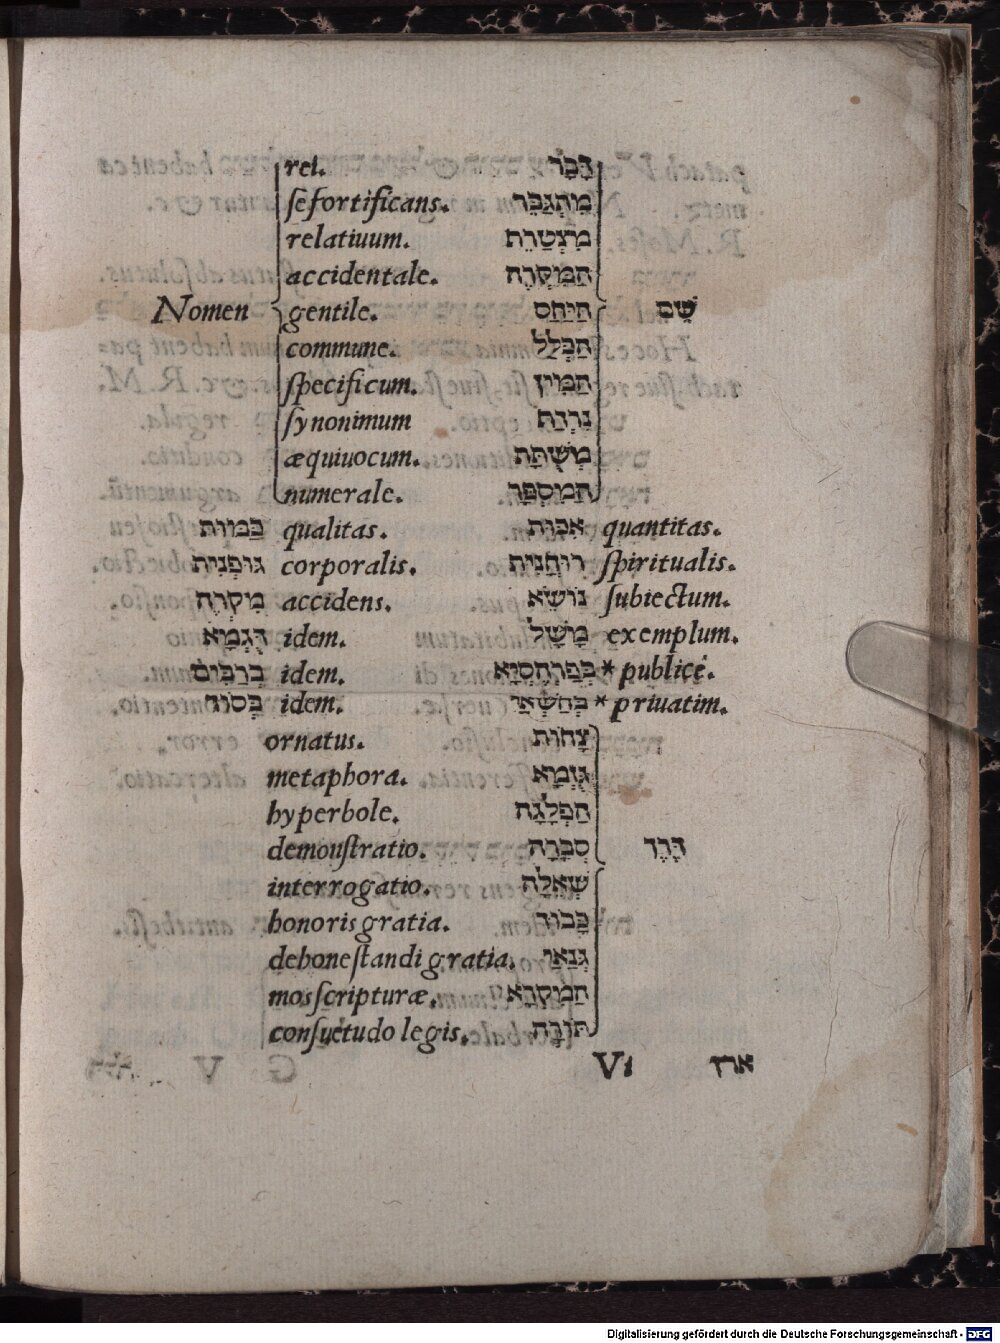 rei. דָּבָר
ſe fortificans. מִתְגַּבֵּר
relatiuum. מִצְטָרֵת
accidentale. הַמִּקְרֶה
Nomen gentile. הַיַּחַס שֵׁם
commune. הַכְּלָל
ſpecificum. הַמִּין
ſynonimum נִרְדָּת
æquiuocum. מְשֻׁתָּת
numerale. הַמִּסְפָּר
qualitas. אֵכוּת quantitas.
גופְנִית corporalis. רוּחָנִית ſpiritualis.
מִקְרֶה accidens. נוֹשֵׂא ſubiectum.
דֻּגְמָא idem. מָשָׁל exemplum.
בְּרַבִּים idem. בְּפַרְהֶסְיָא * publicè.
בְּסוֹד idem. בְּחַשַׁאי * priuatim.
ornatus. צָחוֹת
metaphora. גֻּזְמָא
hyperbole. הַפְלָגָה
demonſtratio. סְבָרָה דֶּרֶךְ
interrogatio. שְׁאֵלָה
honoris gratia. כָּבוֹד
dehoneſtandi gratia. גְּנַאי
mos ſcripturæ. הַמִּקְרָא
conſuetudo legis. תּוֹרָה
ארץ